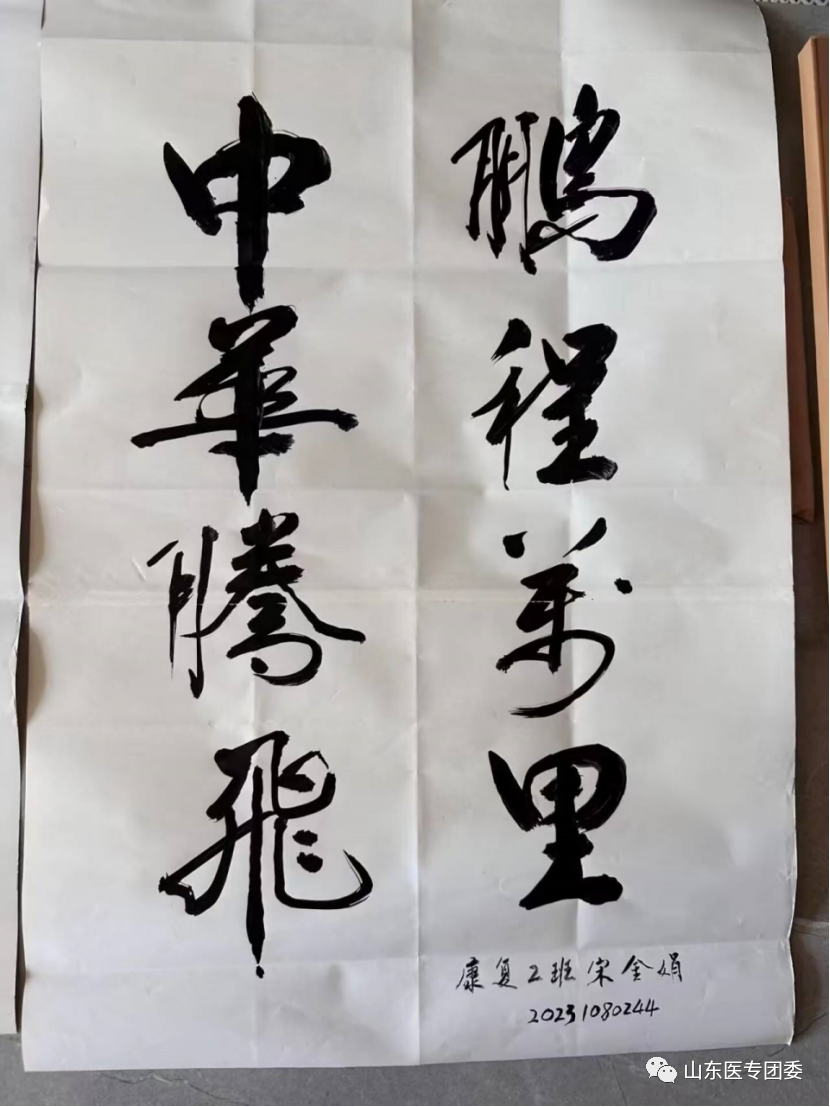 鹏程萬里
中華騰飛
康复2班宋金娟
20231080244
山东医专团委